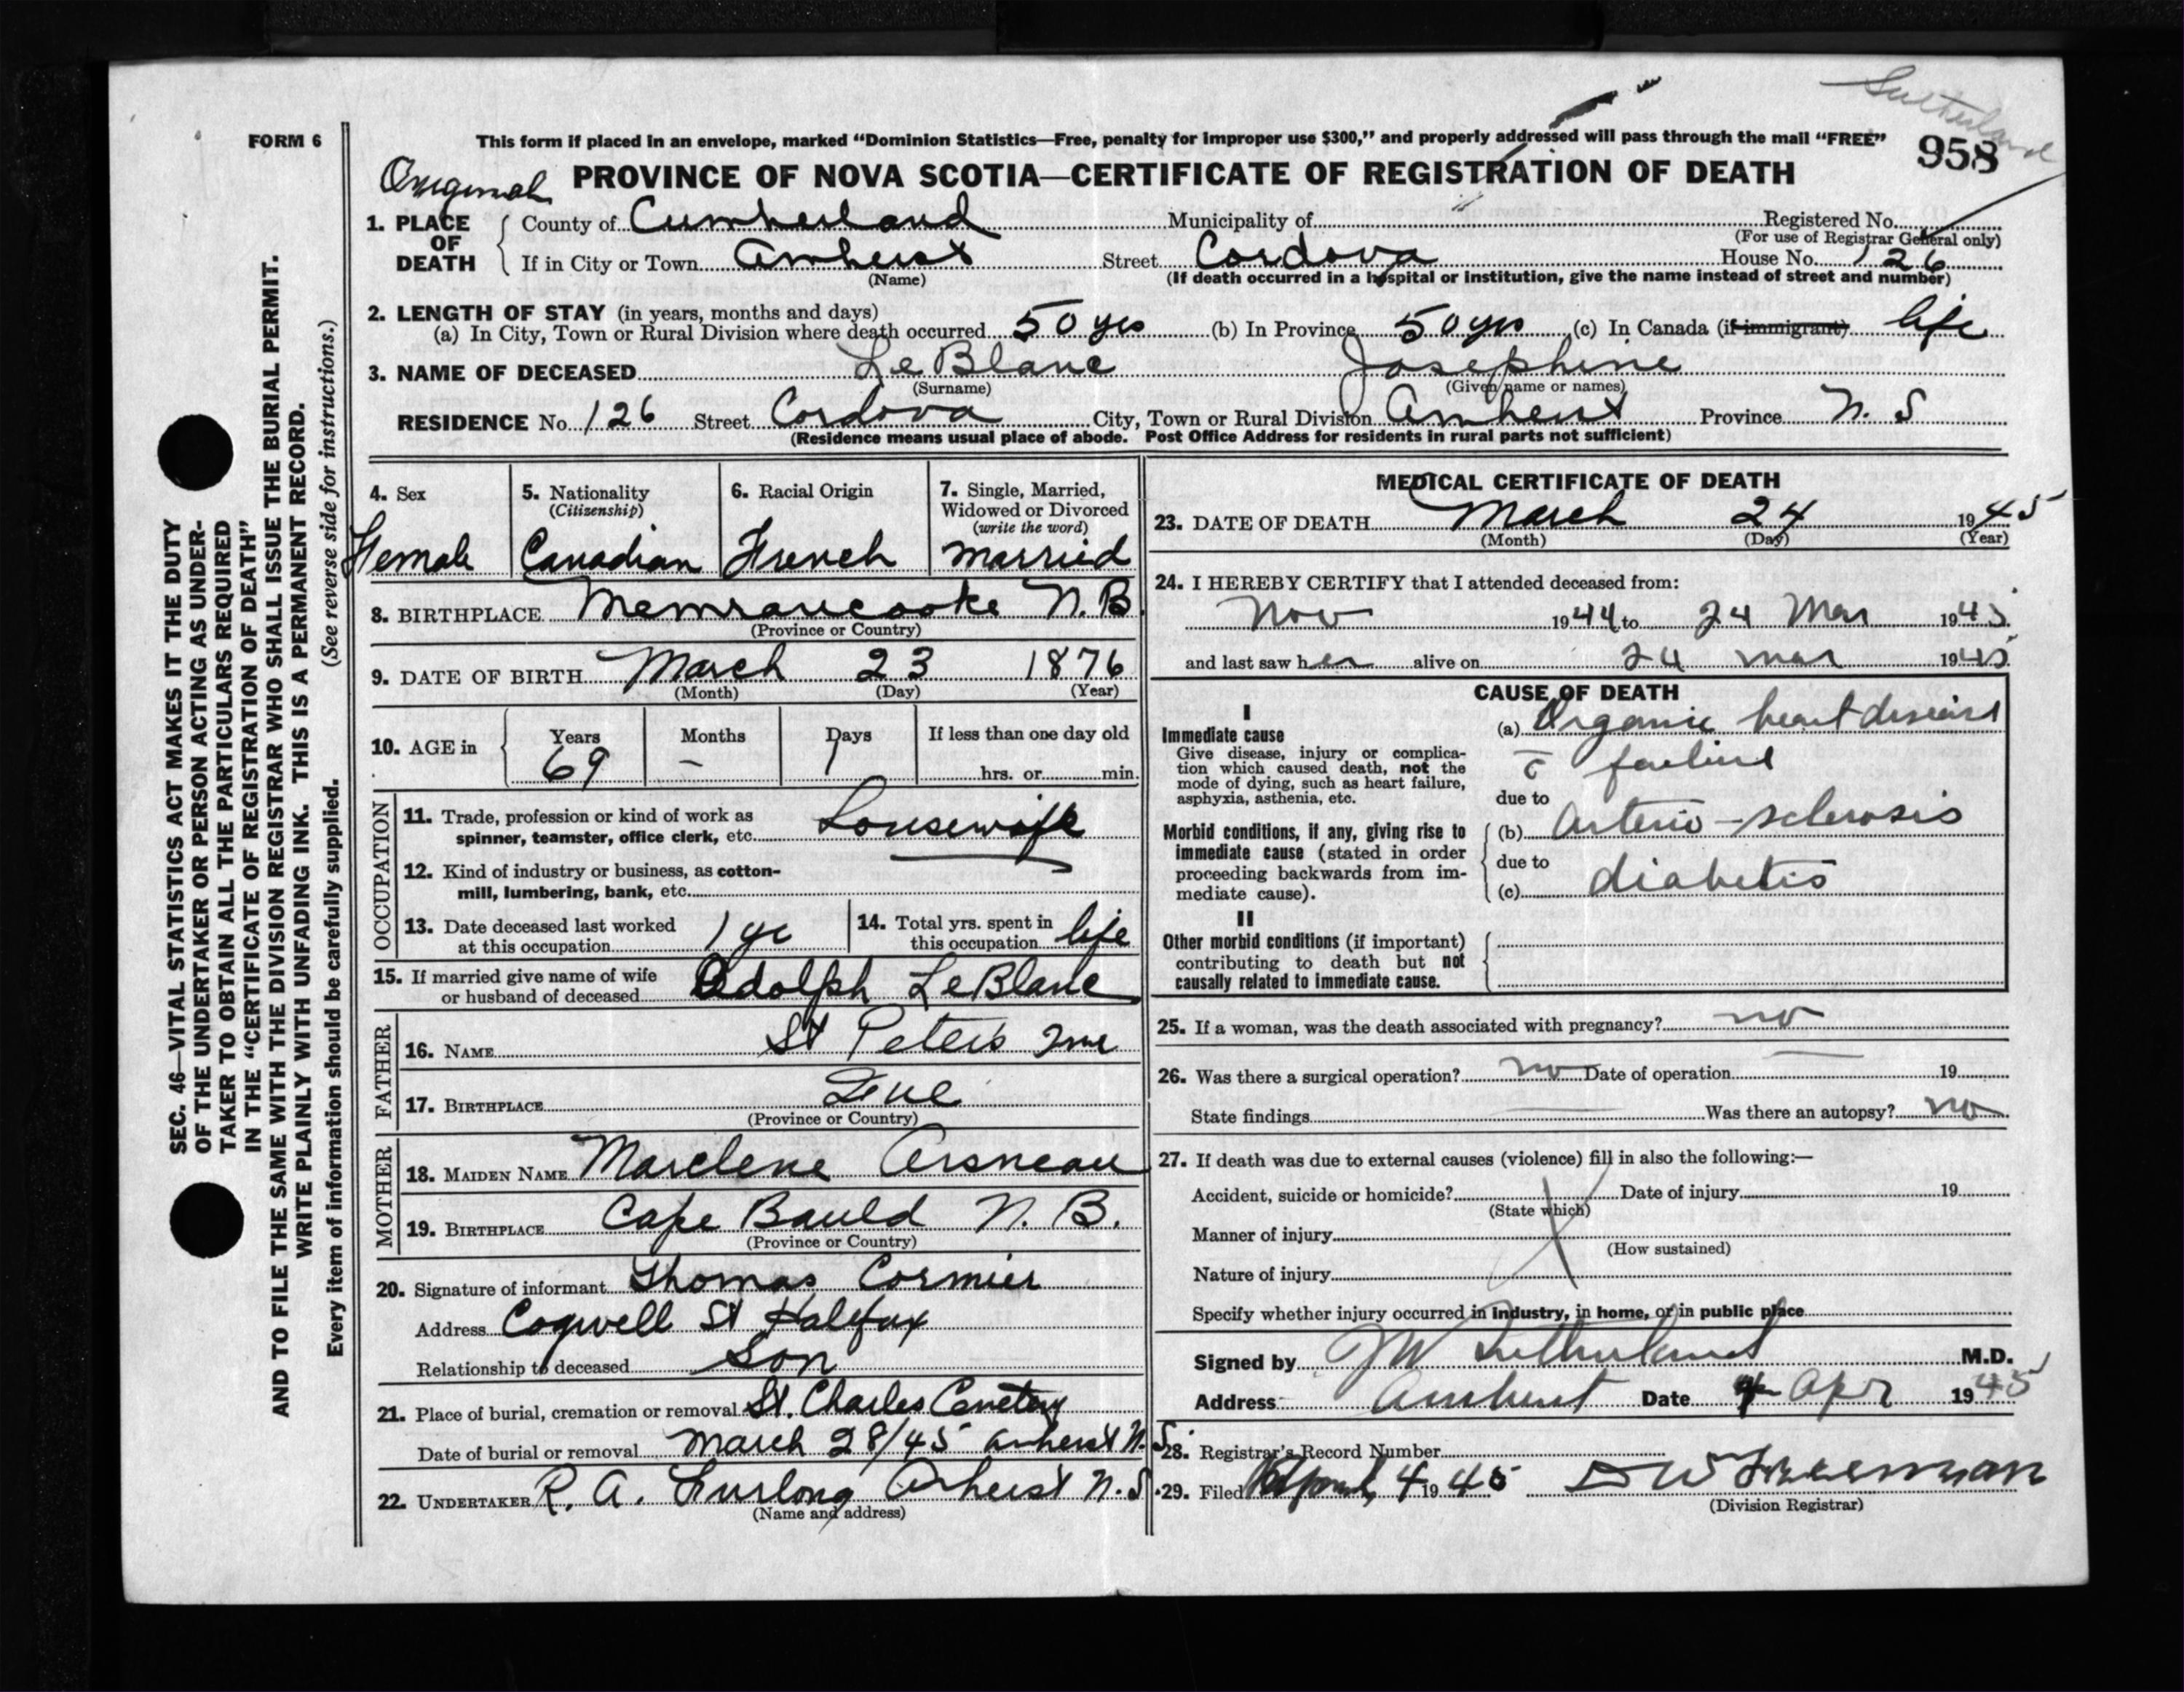 Sutherland
FORM 6
This form if placed in an envelope, marked “Dominion Statistics—Free, penalty for improper use $300,” and properly addressed will pass through the mail “FREE”
958
Original PROVINCE OF NOVA SCOTIA—CERTIFICATE OF REGISTRATION OF DEATH
1. PLACE OF DEATH { County of Cumberland Municipality of Registered No.
(For use of Registrar General only)
If in City or Town Amherst Street Cordova House No. 126
(Name) (If death occurred in a hospital or institution, give the name instead of street and number)
2. LENGTH OF STAY (in years, months and days)
(a) In City, Town or Rural Division where death occurred 50 yrs (b) In Province 50 yrs (c) In Canada (if immigrant) life
3. NAME OF DECEASED LeBlanc Josephine
(Surname) (Given name or names)
RESIDENCE No. 126 Street Cordova City, Town or Rural Division Amherst Province N. S
(Residence means usual place of abode. Post Office Address for residents in rural parts not sufficient)
4. Sex 5. Nationality (Citizenship) 6. Racial Origin 7. Single, Married, Widowed or Divorced (write the word)
Female Canadian French Married
8. BIRTHPLACE Memramcooke N.B.
(Province or Country)
9. DATE OF BIRTH March 23 1876
(Month) (Day) (Year)
10. AGE in { Years Months Days If less than one day old
69 – 1 hrs. or min.
OCCUPATION
11. Trade, profession or kind of work as
spinner, teamster, office clerk, etc. Housewife
12. Kind of industry or business, as cotton-
mill, lumbering, bank, etc.
13. Date deceased last worked
at this occupation 1 yr
14. Total yrs. spent in
this occupation life
15. If married give name of wife
or husband of deceased Adolph LeBlanc
FATHER
16. NAME St Peter's
17. BIRTHPLACE
(Province or Country)
MOTHER
18. MAIDEN NAME Marclene Arsneau
19. BIRTHPLACE Cape Bauld N. B.
(Province or Country)
20. Signature of informant Thomas Cormier
Address Cogwell St Halifax
Relationship to deceased Son
21. Place of burial, cremation or removal St. Charles Cemetery
Date of burial or removal March 28/45 Amherst N.S.
22. UNDERTAKER R. A. Furlong Amherst N.S.
(Name and address)
MEDICAL CERTIFICATE OF DEATH
23. DATE OF DEATH March 24 1945
(Month) (Day) (Year)
24. I HEREBY CERTIFY that I attended deceased from:
Nov 1944 to 24 Mar 1945
and last saw her alive on 24 Mar 1945
CAUSE OF DEATH
I
Immediate cause
Give disease, injury or complica-
tion which caused death, not the
mode of dying, such as heart failure,
asphyxia, asthenia, etc.
(a) Organic heart disease
c̄ failure
due to
Morbid conditions, if any, giving rise to
immediate cause (stated in order
proceeding backwards from im-
mediate cause).
(b) Arterio-sclerosis
due to
(c) diabetis
II
Other morbid conditions (if important)
contributing to death but not
causally related to immediate cause.
25. If a woman, was the death associated with pregnancy? no
26. Was there a surgical operation? no Date of operation 19
State findings Was there an autopsy? no
27. If death was due to external causes (violence) fill in also the following:—
Accident, suicide or homicide? Date of injury 19
(State which)
Manner of injury
(How sustained)
Nature of injury
Specify whether injury occurred in industry, in home, or in public place
Signed by JW Sutherland M.D.
Address Amherst Date 4 Apr 1945
28. Registrar's Record Number
29. Filed April 4 1945 D W Freeman
(Division Registrar)
SEC. 46—VITAL STATISTICS ACT MAKES IT THE DUTY
OF THE UNDERTAKER OR PERSON ACTING AS UNDER-
TAKER TO OBTAIN ALL THE PARTICULARS REQUIRED
IN THE “CERTIFICATE OF REGISTRATION OF DEATH”
AND TO FILE THE SAME WITH THE DIVISION REGISTRAR WHO SHALL ISSUE THE BURIAL PERMIT.
WRITE PLAINLY WITH UNFADING INK. THIS IS A PERMANENT RECORD.
Every item of information should be carefully supplied. (See reverse side for instructions.)